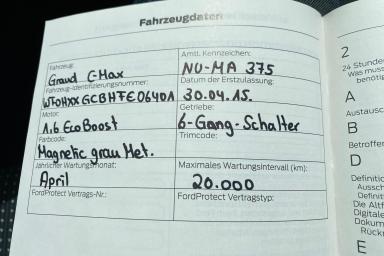 Fahrzeugdaten
Fahrzeug:
Grand C-Max
Amtl. Kennzeichen:
NU-MA 375
Fahrzeug-Identifizierungsnummer:
Datum der Erstzulassung:
30.04.15.
Motor:
1.6 EcoBoost
Getriebe:
6-Gang-Schalter
Farbcode:
Magnetic grau Met.
Trimcode:
Jährlicher Wartungsmonat:
April
Maximales Wartungsintervall (km):
20.000
FordProtect Vertrags-Nr.:
FordProtect Vertragstyp:
2
24 Stunden
Was muss
benötig
A
Austausc
B
Betroffe
D
Definitio
Aussch
Definit
Die Altf
Digitale
Dokum
Rückn
E